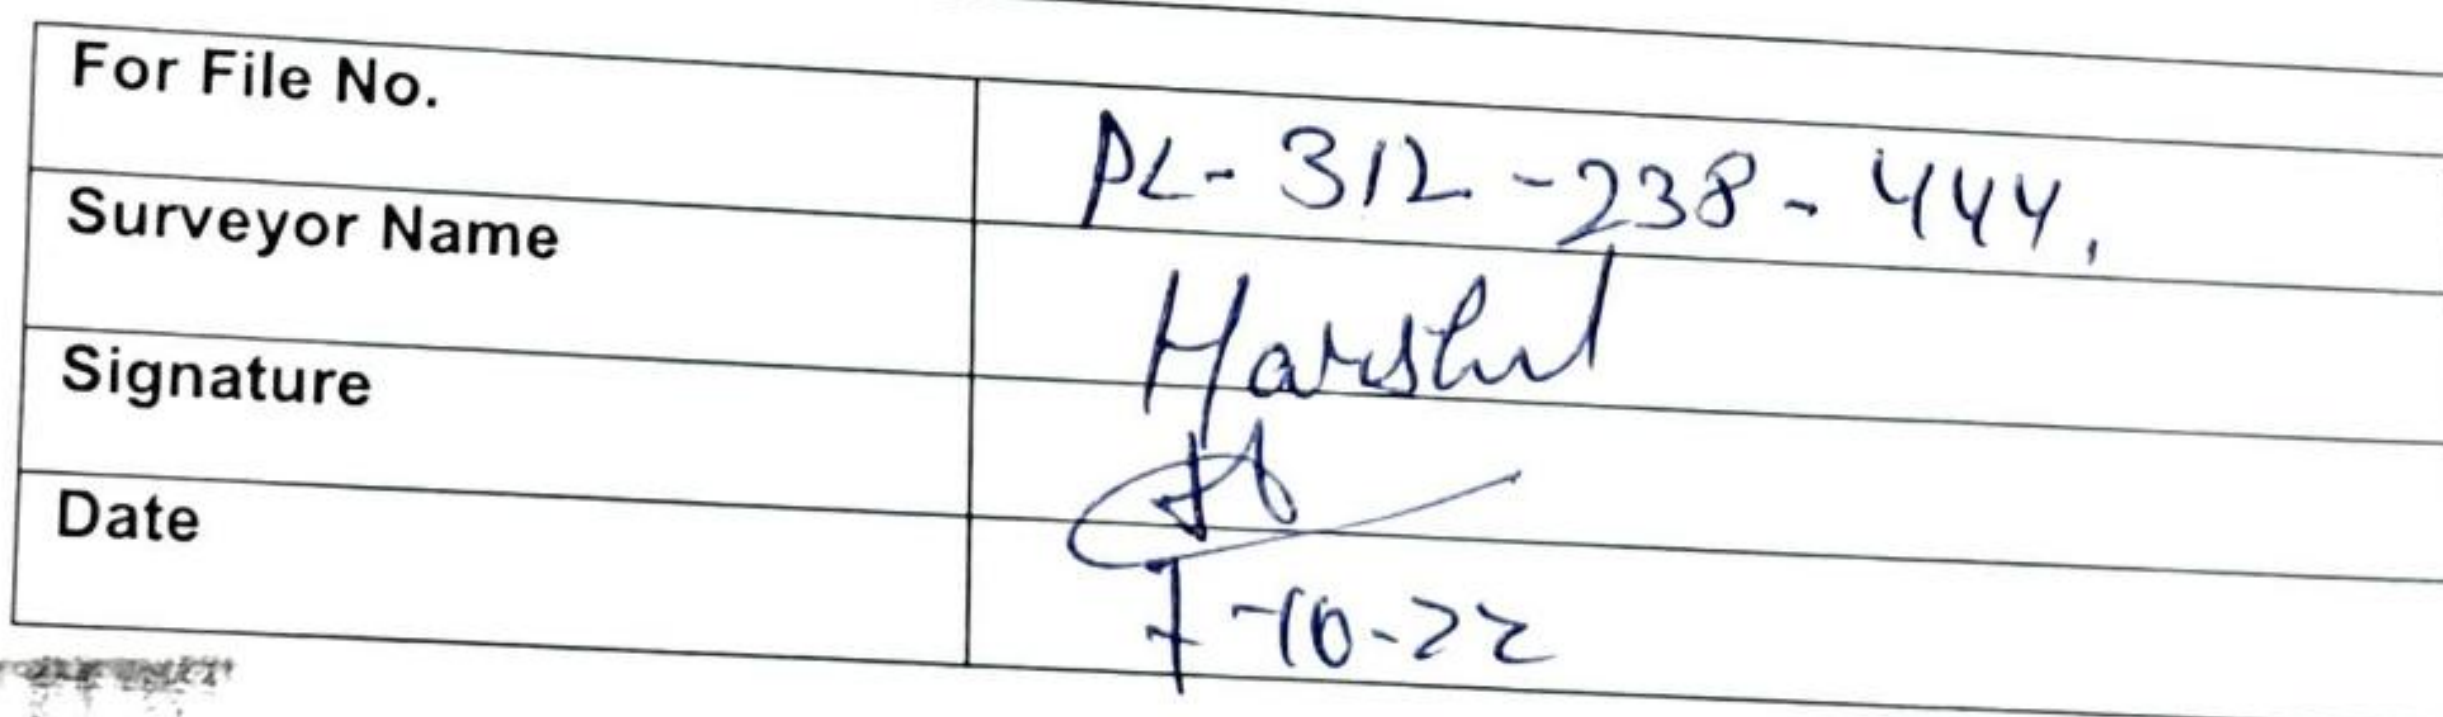 For File No. PL-312-238-444,
Surveyor Name Harshit
Signature
Date 7-10-22